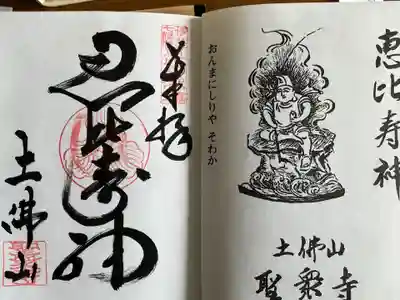 恵比寿神
土佛山
聖衆寺
おんまにしりや そわか
奉拝
恵比寿神
土佛山